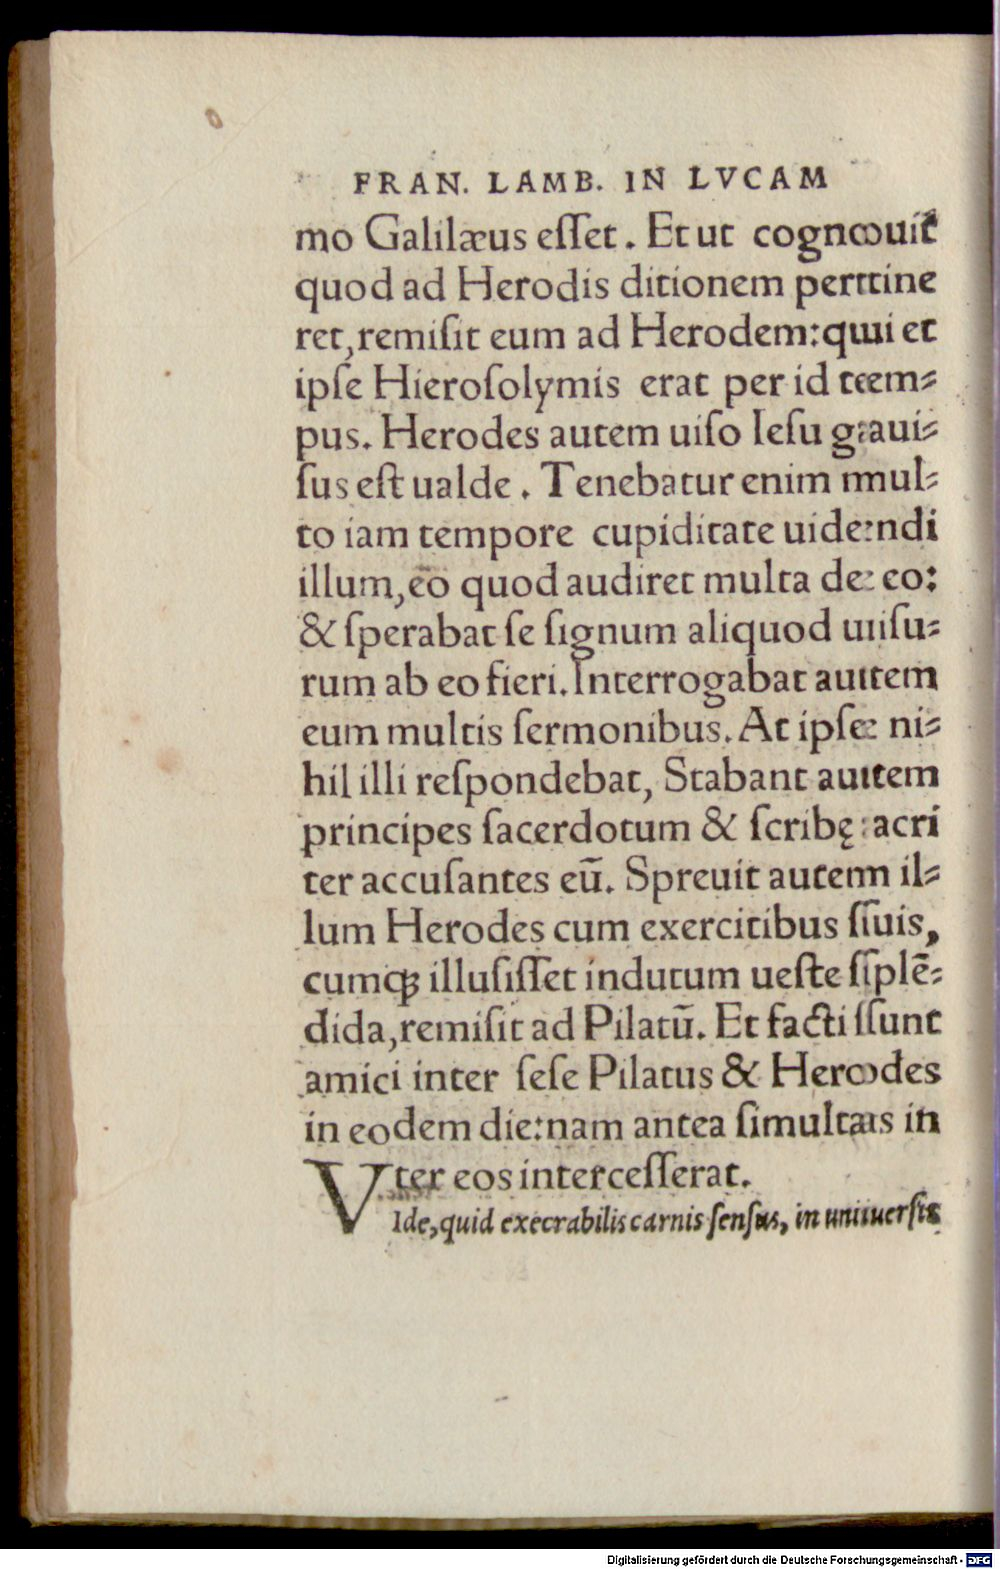 FRAN. LAMB. IN LVCAM
mo Galilæus eſſet. Et ut cognouit
quod ad Herodis ditionem pertine
ret, remiſit eum ad Herodem: qui et
ipſe Hieroſolymis erat per id tem⸗
pus. Herodes autem uiſo Ieſu gaui⸗
ſus eſt ualde. Tenebatur enim mul⸗
to iam tempore cupiditate uidendi
illum, eo quod audiret multa de eo:
& ſperabat ſe ſignum aliquod uiſu⸗
rum ab eo fieri. Interrogabat autem
eum multis ſermonibus. At ipſe ni⸗
hil illi reſpondebat, Stabant autem
principes ſacerdotum & ſcribę acri
ter accuſantes eū. Spreuit autem il⸗
lum Herodes cum exercitibus ſuis,
cumqꝫ illuſiſſet indutum ueſte ſplē⸗
dida, remiſit ad Pilatū. Et facti ſunt
amici inter ſeſe Pilatus & Herodes
in eodem die: nam antea ſimultas in
ter eos interceſſerat.
VIde, quid execrabilis carnis ſenſus, in uniuerſis
Digitalisierung gefördert durch die Deutsche Forschungsgemeinschaft - DFG